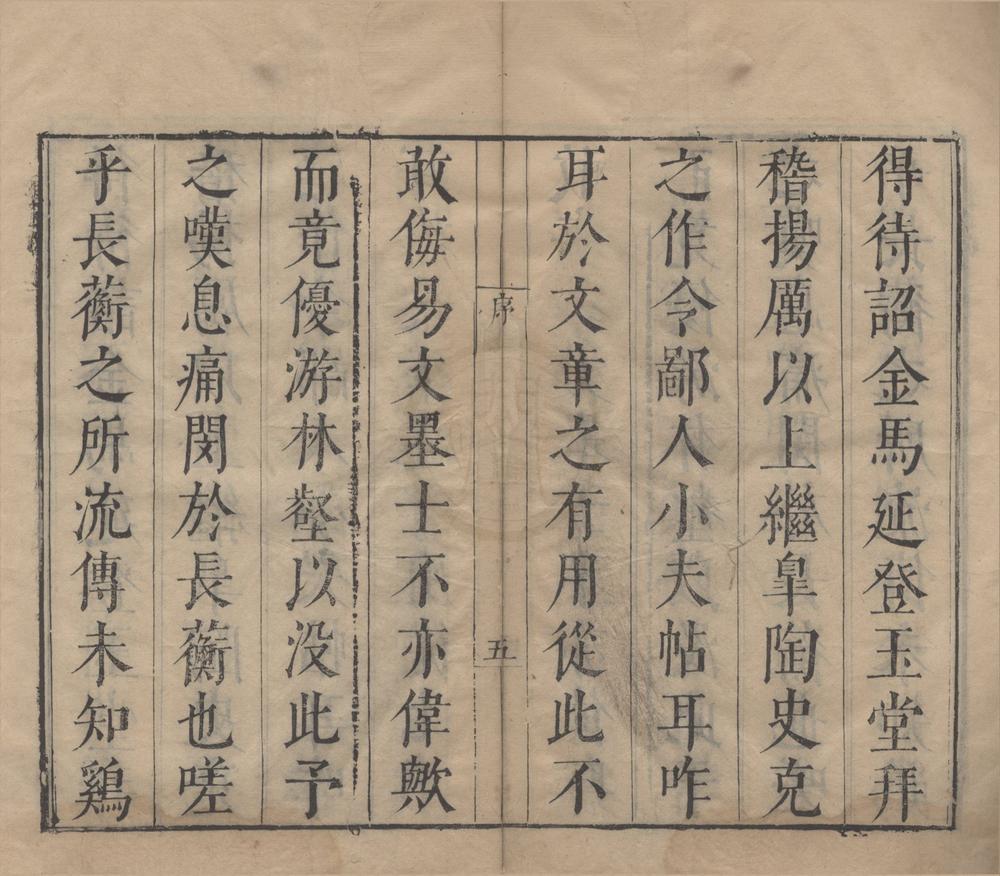 得待詔金馬延登玉堂拜
稽揚厲以上繼皐陶史克
之作令鄙人小夫帖耳咋
耳於文章之有用從此不
序
五
敢侮易文墨士不亦偉歟
而竟優游林壑以没此予
之嘆息痛閔於長蘅也嗟
乎長蘅之所流傳未知鷄